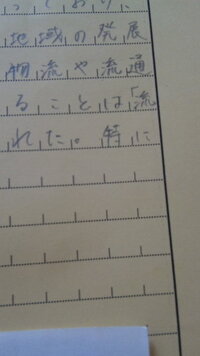 っており、
地域の発展
物流や流通
ることは「流
れた。特に